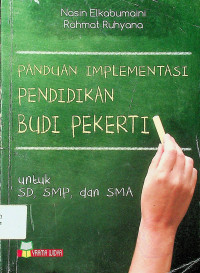 Nasin Elkabumaini
Rahmat Ruhyana
PANDUAN IMPLEMENTASI
PENDIDIKAN
BUDI PEKERTI
untuk
SD, SMP, dan SMA
YRAMA WIDYA